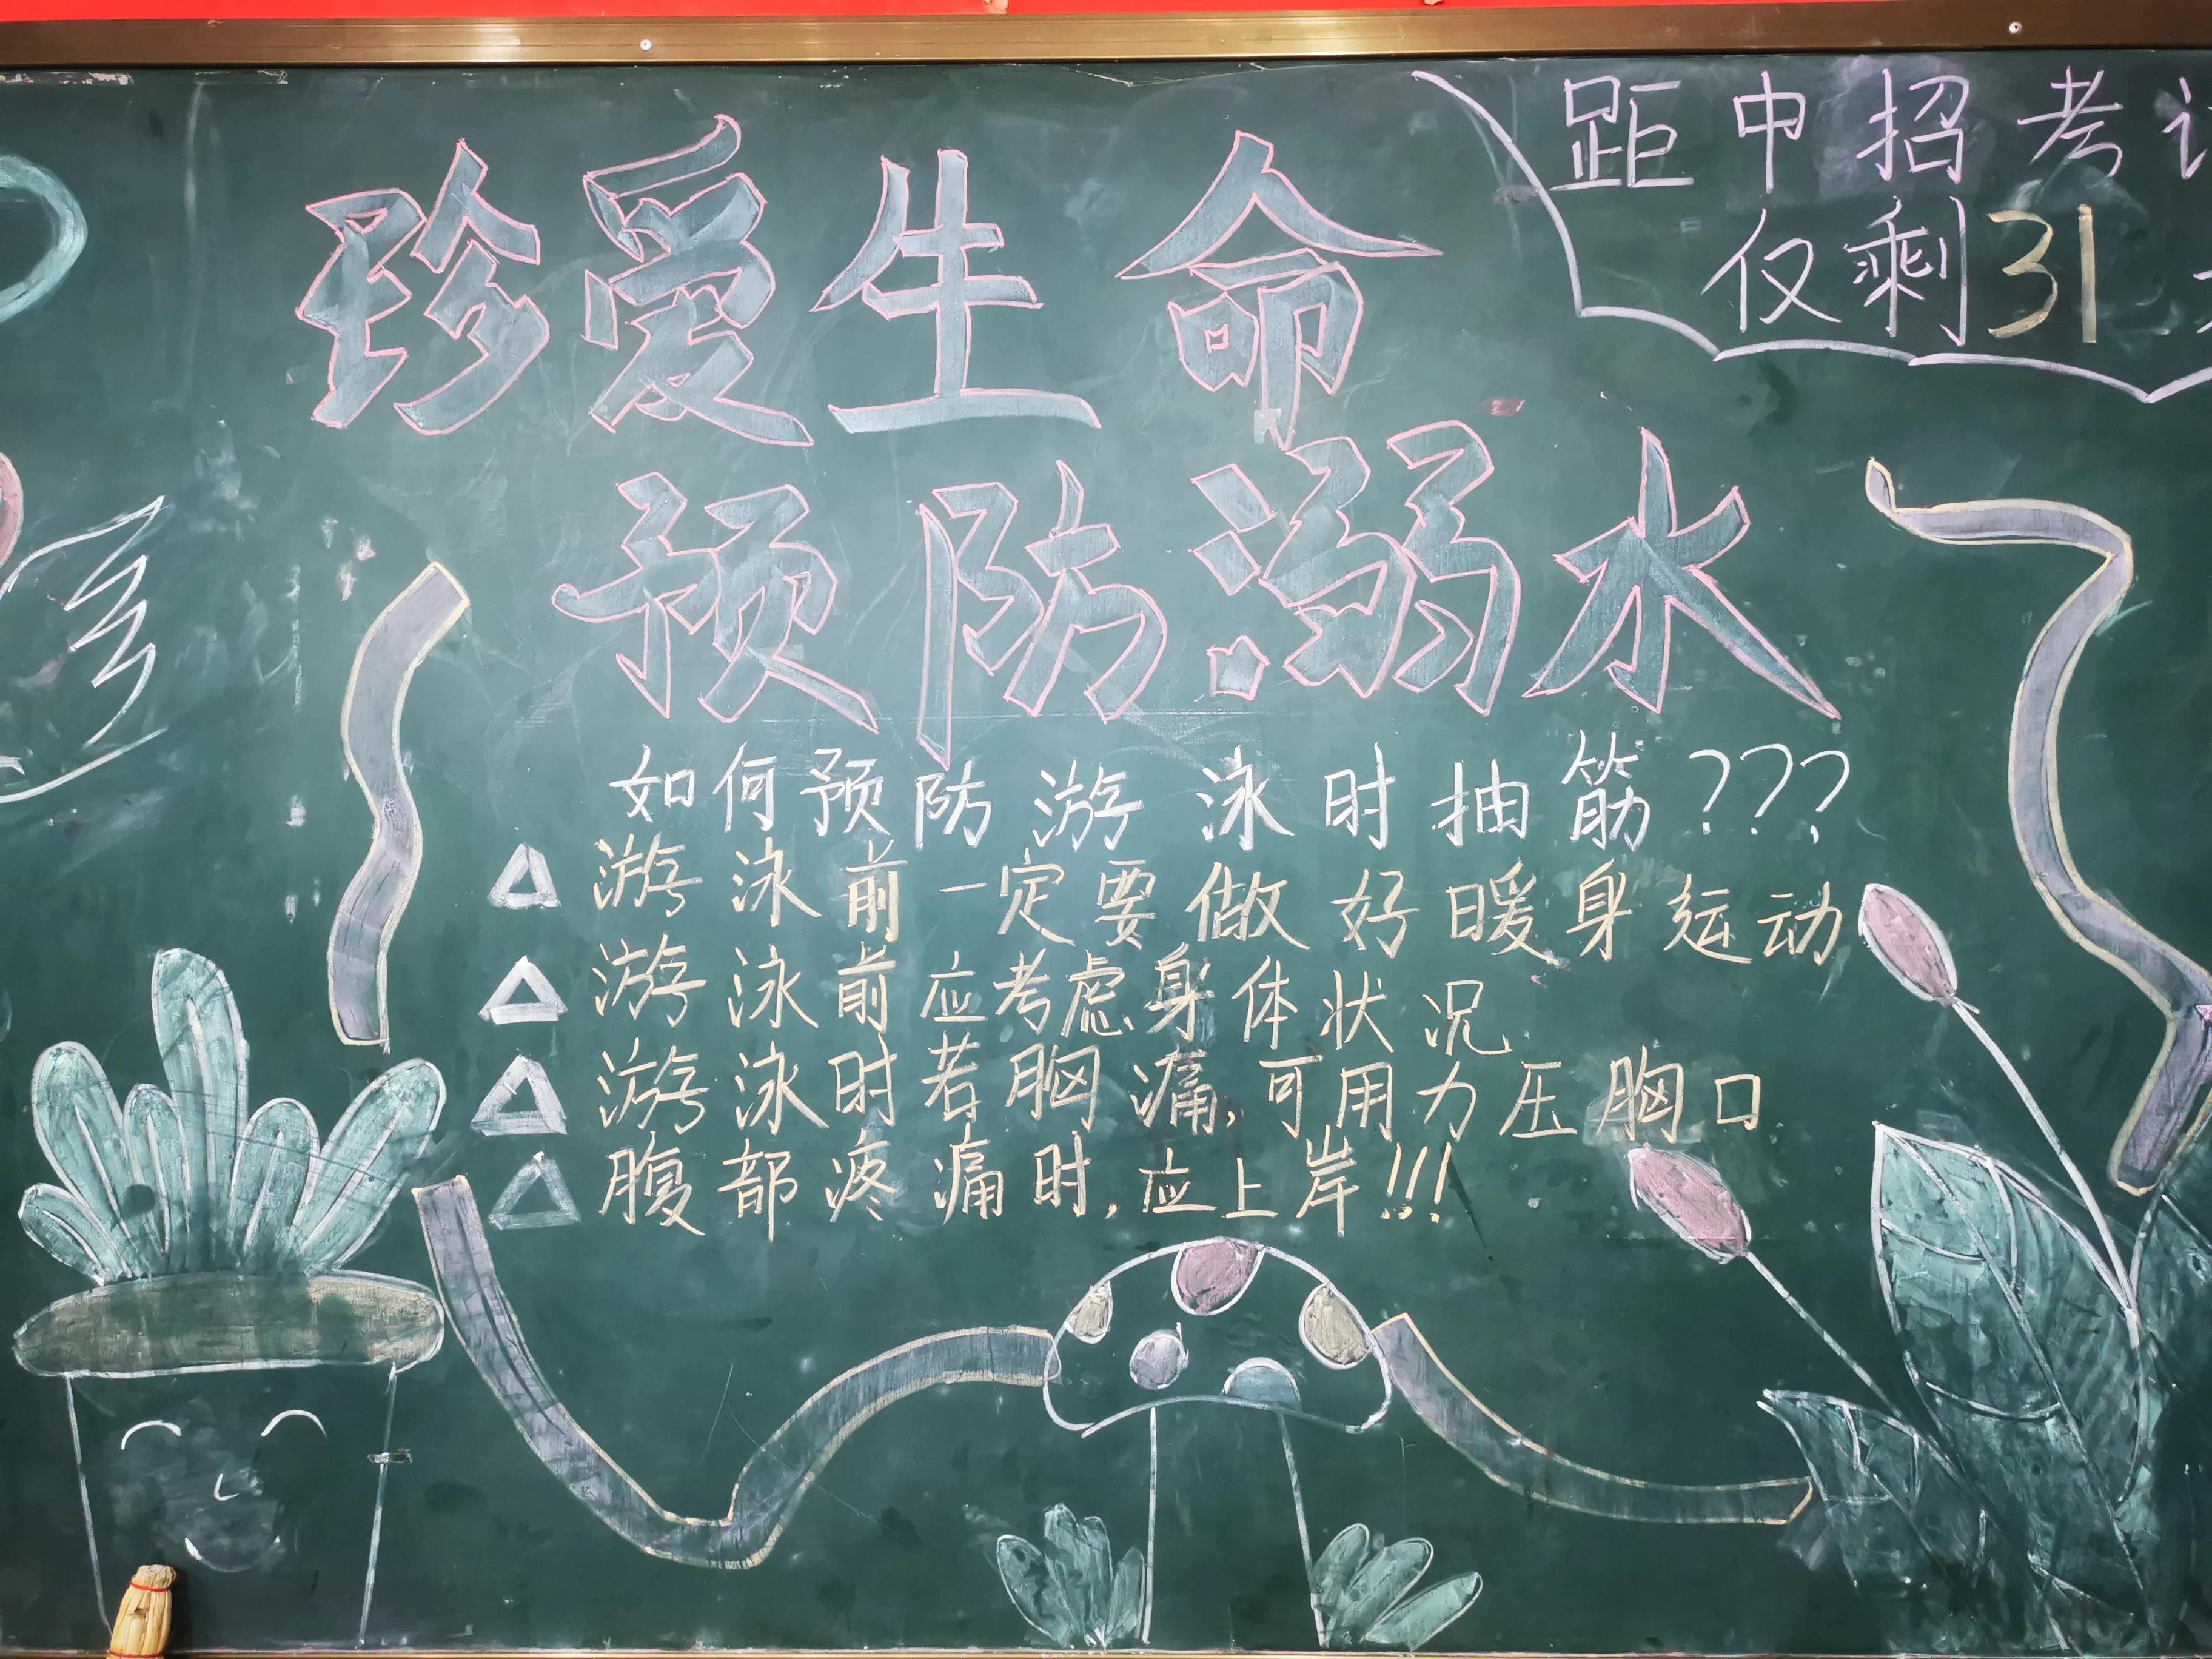 珍爱生命
预防溺水
距中招考
仅剩31
如何预防游泳时抽筋???
△游泳前一定要做好暖身运动
△游泳前应考虑身体状况
△游泳时若胸痛,可用力压胸口
△腹部疼痛时,应上岸!!!